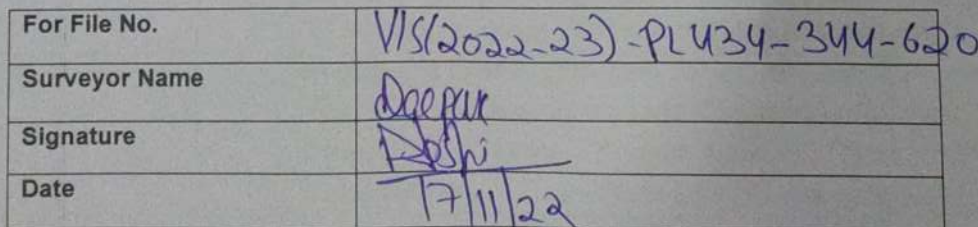 For File No. VIS(2022-23)-PL434-344-620
Surveyor Name Deepak
Signature Joshi
Date 17/11/22